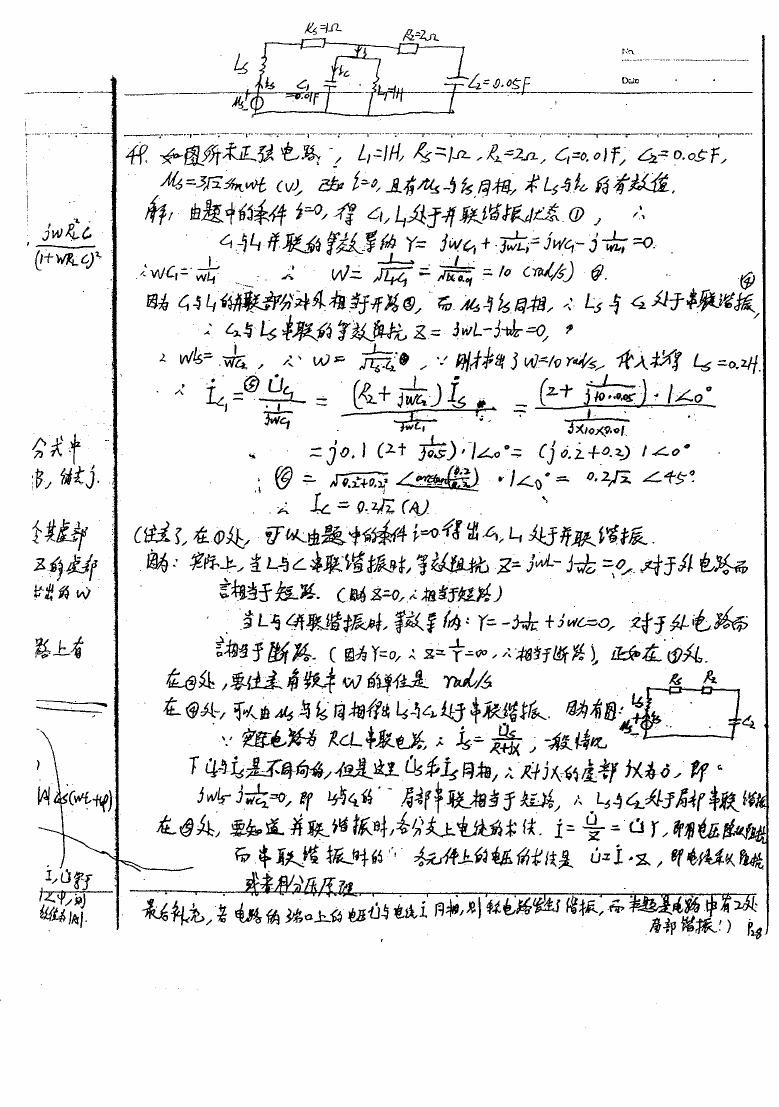 Rs=1Ω
R2=2Ω
Ls
C1
=0.01F
L1=1H
C2=0.05F
No
Date
49. 如图所示正弦电路, L1=1H, Rs=1Ω, R2=2Ω, C1=0.01F, C2=0.05F,
Us=3√2 sinwt (V), 已知 i=0, 且有us与is同相, 求Ls与ic的有效值.
解: 由题中的条件i=0, 得 C1, L1处于并联谐振状态①, ∴
C1与L1并联的等效导纳 Y= jwC1 + 1/jwL1 = jwC1 - j 1/wL1 =0.
∴wC1= 1/wL1 ∴ W= 1/√L1C1 = 1/√1×0.01 = 10 (rad/s) ②.
因为C1与L1的并联部分对外相当于开路③, 而us与is同相, ∴ Ls与C2处于串联谐振, ④
∴ C2与Ls串联的等效阻抗 Z= jwL-j 1/wc =0,
∴ wLs= 1/wC2, ∴ W= 1/√LsC2, ∵ 刚才求出了W=10 rad/s, 代入求得 Ls=0.2H.
∴ İC1 =⑤ U̇C1 / (1/jwC1) = (R2 + 1/jwC2) İs / (1/jwC1) = (2+ 1/j10·0.05)·1∠0° / (1/j×10×0.01)
=j0.1 (2+ 1/j0.5)·1∠0°= (j0.2+0.2) 1∠0°
⑥ = √0.2²+0.2² ∠arctan(0.2/0.2) ·1∠0° = 0.2√2 ∠45°
∴ Ic = 0.2√2 (A)
(注意了, 在①处, 可以由题中的条件i=0得出C1, L1处于并联谐振.
因为: 实际上, 当L与C串联谐振时, 等效阻抗 Z= jwL-j 1/wc =0, 对于外电路而
言相当于短路. (因为Z=0, ∴相当于短路)
当L与C并联谐振时, 等效导纳: Y= -j 1/wL + jwc=0, 对于外电路而
言相当于断路. (因为Y=0, ∴ Z= 1/Y =∞, ∴相当于断路), 正如在④处.
在②处, 要注意角频率W的单位是 rad/s
在④处, 可以由us与is同相得出Ls与C2处于串联谐振. 因为有图:
Rs R2
Ls
Us
C2
∵ 实际电路为RCL串联电路, ∴ İs= U̇s/R+jX, 一般情况
下U̇s与İs是不同向的, 但是这里U̇s和İs同相, ∴ R+jX的虚部jX为0, 即
jwLs-j 1/wC2 =0, 即 Ls与C2的 局部串联相当于短路, ∴ Ls与C2处于局部串联谐振
在⑤处, 要知道并联谐振时, 各分支上电流的求法. İ= U̇/Z = U̇Y, 即用电压除以阻抗
而串联谐振时的 各元件上的电压的求法是 U̇=İ·Z, 即电流乘以阻抗
或者用分压原理
最后补充, 若电路的端口上的电压U̇与电流İ同相, 则称电路发生了谐振, 而本题是电路中有2处
局部谐振!) P28
jwR²LC
(1+WRLC)²
分式中
母, 值去j.
全其虚部
Z的虚部
求出的W
路上有
)
|A|cos(wt+φ)